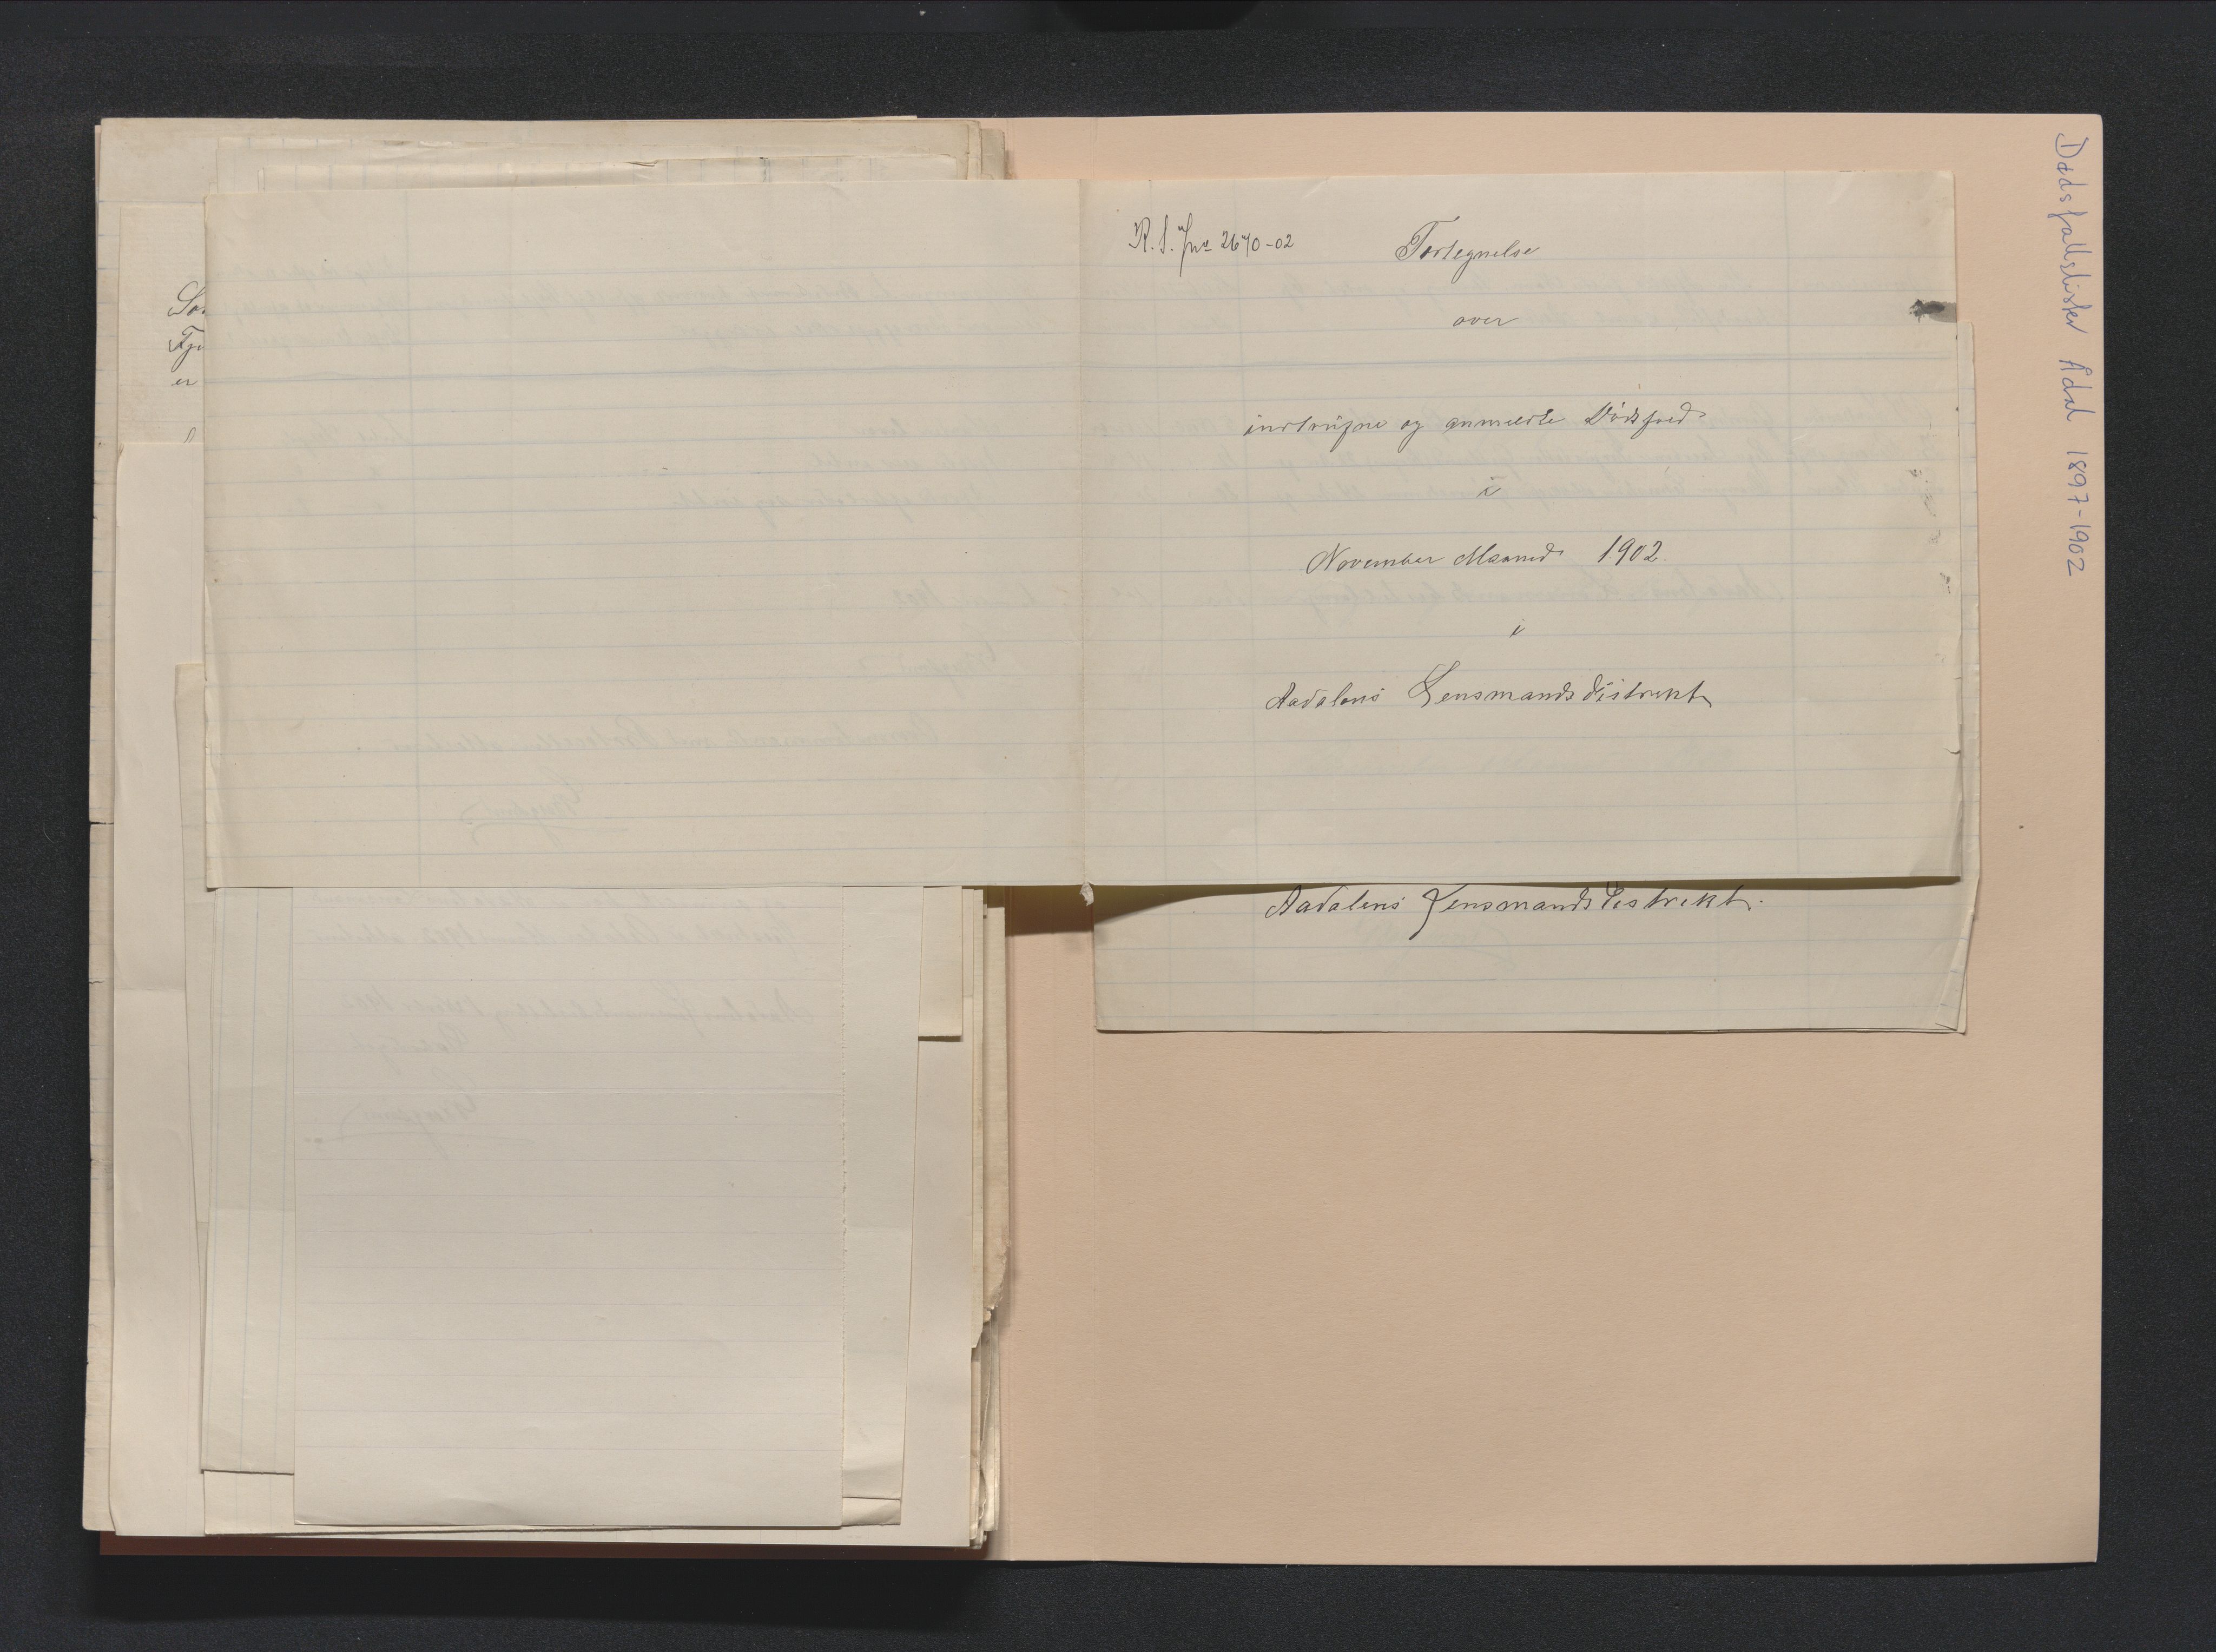 R. S. Jno 2670-02
Fortegnelse
over
indtrufne og anmeldte Dødsfald
i
November Maaned 1902.
i
Aadalens Lensmandsdistrikt
Aadalens Lensmandsdistrikt.
Dødsfallslister Ådal 1897-1902
er